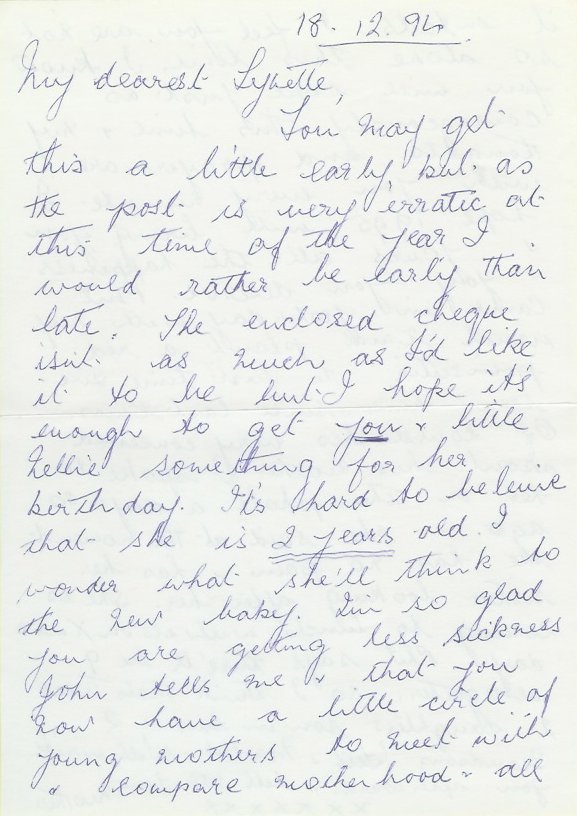 18.12.94.
My dearest Lynette,
You may get
this a little early but as
the post is very erratic at
this time of the year I
would rather be early than
late. The enclosed cheque
isn't as much as I'd like
it to be but I hope it's
enough to get you & little
Nellie something for her
birthday. It's hard to beleive
that she is 2 years old. I
wonder what she'll think to
the new baby. I'm so glad
you are getting less sickness
John tells me & that you
now have a little circle of
young mothers to meet with
& compare motherhood & all